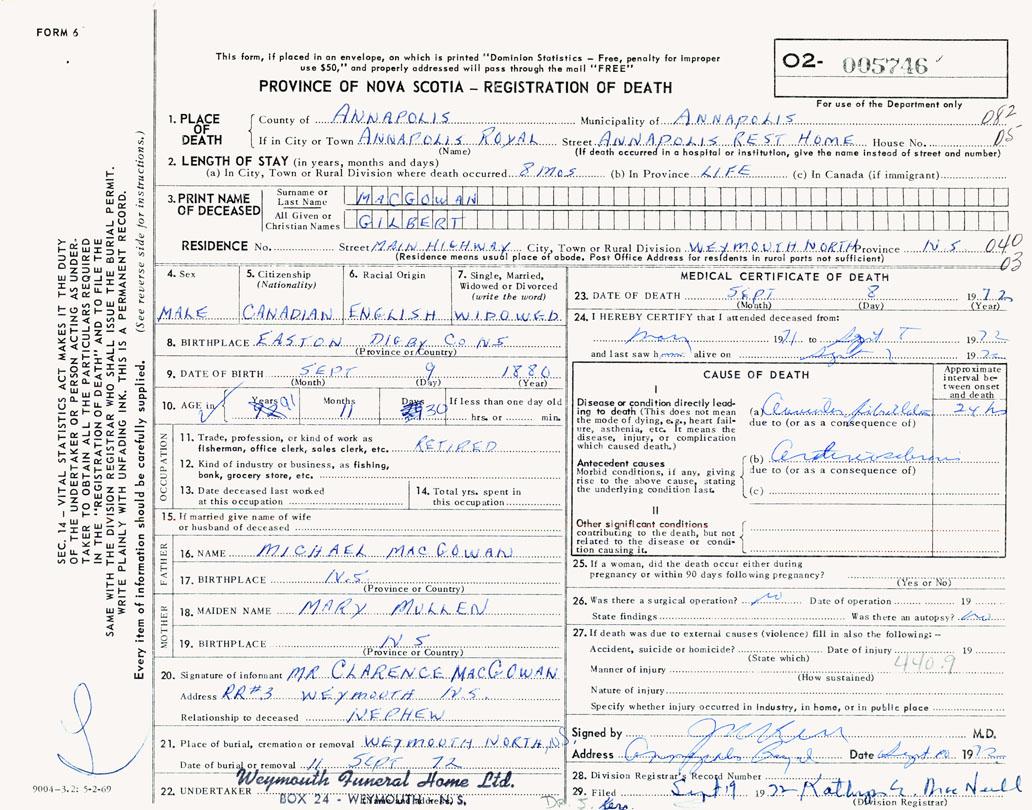 FORM 6
This form, if placed in an envelope, on which is printed "Dominion Statistics - Free, penalty for improper
use $50," and properly addressed will pass through the mail "FREE"
PROVINCE OF NOVA SCOTIA - REGISTRATION OF DEATH
02- 005746
For use of the Department only
1. PLACE OF DEATH
County of ANNAPOLIS Municipality of ANNAPOLIS 082
If in City or Town ANNAPOLIS ROYAL Street ANNAPOLIS REST HOME House No. 05
(Name) (If death occurred in a hospital or institution, give the name instead of street and number)
2. LENGTH OF STAY (in years, months and days)
(a) In City, Town or Rural Division where death occurred 8 MOS (b) In Province LIFE (c) In Canada (if immigrant)
3. PRINT NAME OF DECEASED
Surname or Last Name MACGOWAN
All Given or Christian Names GILBERT
RESIDENCE No. Street MAIN HIGHWAY City, Town or Rural Division WEYMOUTH NORTH Province N.S 040
(Residence means usual place of abode. Post Office Address for residents in rural parts not sufficient) 03
4. Sex MALE
5. Citizenship (Nationality) CANADIAN
6. Racial Origin ENGLISH
7. Single, Married, Widowed or Divorced (write the word) WIDOWED
8. BIRTHPLACE EASTON DIGBY CO NS
(Province or Country)
9. DATE OF BIRTH SEPT 9 1880
(Month) (Day) (Year)
10. AGE in Years 91 Months 11 Days 30 If less than one day old
hrs. or min.
OCCUPATION
11. Trade, profession, or kind of work as
fisherman, office clerk, sales clerk, etc. RETIRED
12. Kind of industry or business, as fishing,
bank, grocery store, etc.
13. Date deceased last worked
at this occupation
14. Total yrs. spent in
this occupation
15. If married give name of wife
or husband of deceased
FATHER
16. NAME MICHAEL MACGOWAN
17. BIRTHPLACE N.S
(Province or Country)
MOTHER
18. MAIDEN NAME MARY MULLEN
19. BIRTHPLACE N S
(Province or Country)
20. Signature of informant MR CLARENCE MACGOWAN
Address RR#3 WEYMOUTH N.S.
Relationship to deceased NEPHEW
21. Place of burial, cremation or removal WEYMOUTH NORTH N.S.
Date of burial or removal 11 SEPT 72
22. UNDERTAKER Weymouth Funeral Home Ltd.
BOX 24 - WEYMOUTH, N. S.
MEDICAL CERTIFICATE OF DEATH
23. DATE OF DEATH SEPT 8 1972
(Month) (Day) (Year)
24. I HEREBY CERTIFY that I attended deceased from:
1971 to Sept 1972
and last saw h alive on Sept 7 1972
CAUSE OF DEATH
Approximate interval between onset and death
I
Disease or condition directly leading to death (This does not mean the mode of dying, e.g., heart failure, asthenia, etc. It means the disease, injury, or complication which caused death.)
(a) fibrillation 24 hs
due to (or as a consequence of)
Antecedent causes
Morbid conditions, if any, giving rise to the above cause, stating the underlying condition last.
(b)
due to (or as a consequence of)
(c)
II
Other significant conditions
contributing to the death, but not related to the disease or condition causing it.
25. If a woman, did the death occur either during
pregnancy or within 90 days following pregnancy?
(Yes or No)
26. Was there a surgical operation? no Date of operation 19
State findings Was there an autopsy? no
27. If death was due to external causes (violence) fill in also the following: -
Accident, suicide or homicide? Date of injury 19
(State which)
440.9
Manner of injury
(How sustained)
Nature of injury
Specify whether injury occurred in industry, in home, or in public place
Signed by M.D.
Address Annapolis Royal Date Sept 1972
28. Division Registrar's Record Number
29. Filed Sept 19 1972 Kathryn E. MacNeill
(Division Registrar)
SEC. 14 - VITAL STATISTICS ACT MAKES IT THE DUTY
OF THE UNDERTAKER OR PERSON ACTING AS UNDER-
TAKER TO OBTAIN ALL THE PARTICULARS REQUIRED
IN THE "REGISTRATION OF DEATH" AND TO FILE THE
SAME WITH THE DIVISION REGISTRAR WHO SHALL ISSUE THE BURIAL PERMIT.
WRITE PLAINLY WITH UNFADING INK. THIS IS A PERMANENT RECORD.
Every item of information should be carefully supplied. (See reverse side for instructions.)
9004-3.2: 5-2-69